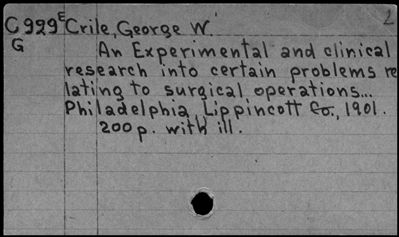 C929E Crile, George W. 2
G An Experimental and clinical
research into certain problems re
lating to surgical operations...
Philadelphia, Lippincott Co., 1901.
200 p. with ill.